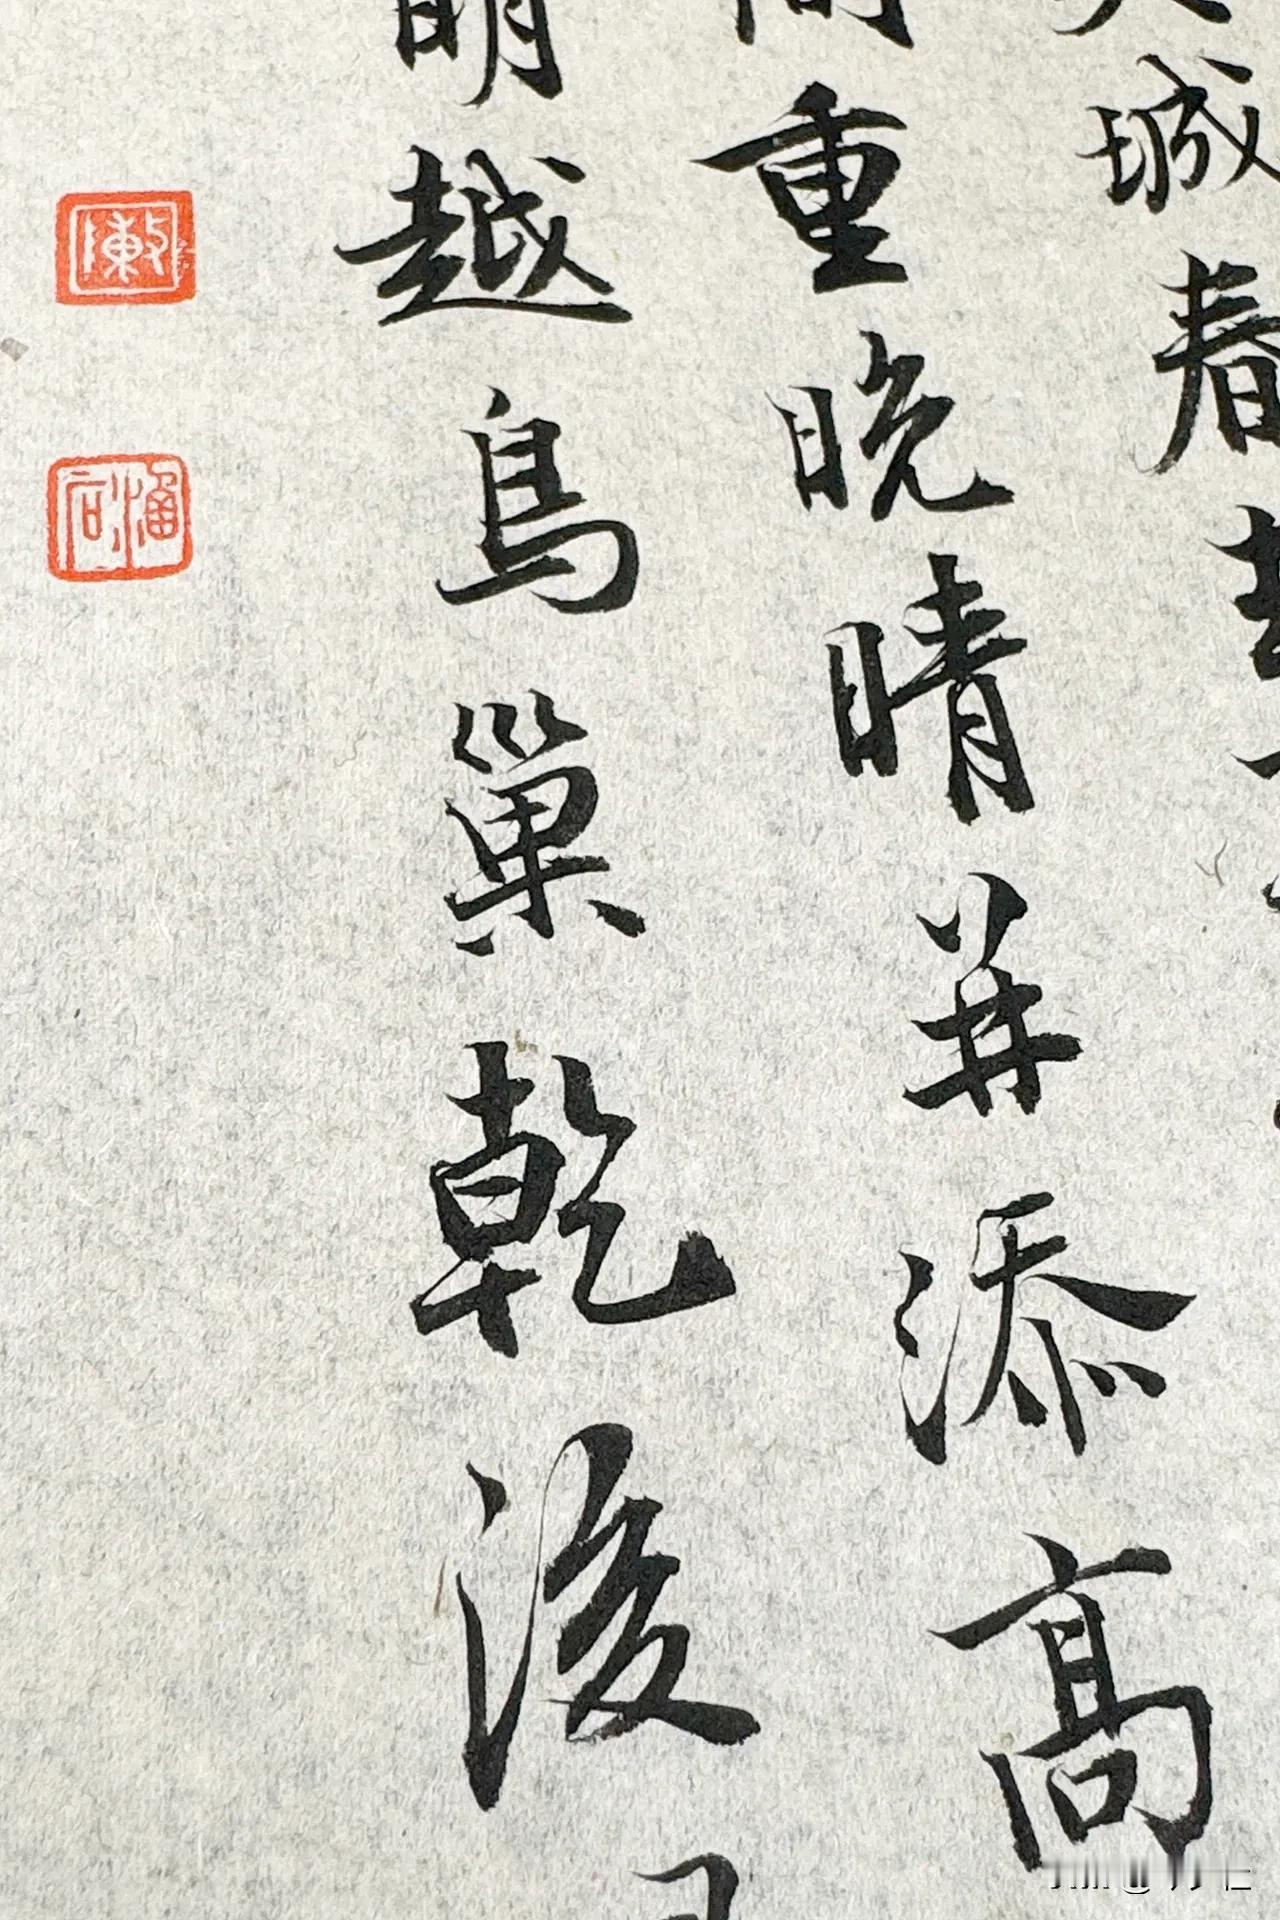 城春
間重晚晴并添高
明越鳥巢乾後